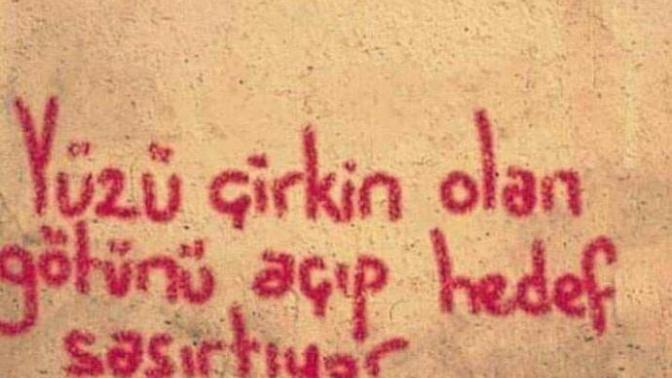 Yüzü çirkin olan
götünü açıp hedef
şaşırtıyor